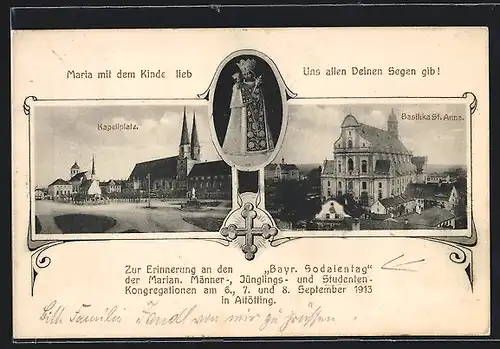 Maria mit dem Kinde lieb Uns allen Deinen Segen gib!
Kapellplatz.
Basilika St. Anna.
Zur Erinnerung an den „Bayr. Sodalentag"
der Marian. Männer-, Jünglings- und Studenten-
Kongregationen am 6., 7. und 8. September 1913
in Altötting.
Bitte Familie von mir zu grüssen.